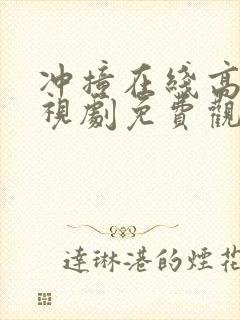 冲撞在綫高
視劇免費觀
達琳港的煙花